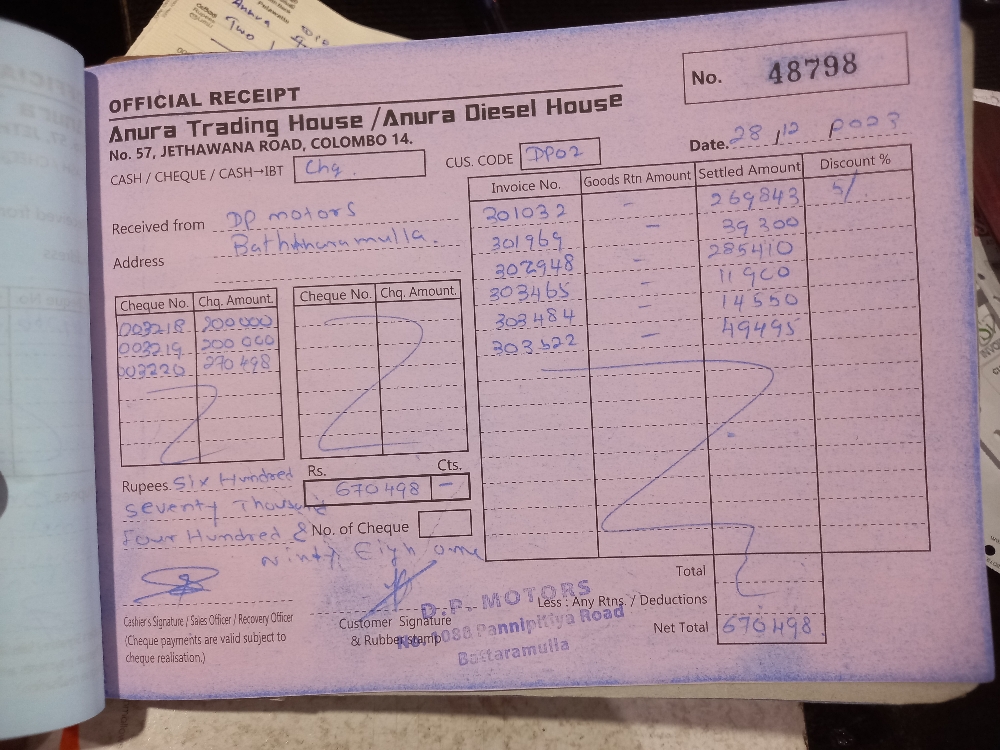 OFFICIAL RECEIPT
No. 48798
Anura Trading House / Anura Diesel House
No. 57, JETHAWANA ROAD, COLOMBO 14.
Date. 28/12 2023
CASH / CHEQUE / CASH→IBT Chq.
CUS. CODE DP02
Received from DP motors
Baththaramulla.
Address
Invoice No. Goods Rtn Amount Settled Amount Discount %
301032 - 269843 5/
301969 - 39300
302948 - 285410
303465 - 11900
303484 - 14550
303522 - 49495
Cheque No. Chq. Amount. Cheque No. Chq. Amount.
003218 200000
003219 200000
003220 270498
Rupees Six Hundred
Seventy Thousand
Four Hundred &
Ninty Eigh only
Rs. Cts.
670498 -
No. of Cheque
Total
Less : Any Rtns. / Deductions
Net Total 670498
Cashier's Signature / Sales Officer / Recovery Officer
(Cheque payments are valid subject to
cheque realisation.)
Customer Signature
& Rubber stamp
D.P. MOTORS
Pannipitiya Road
Battaramulla